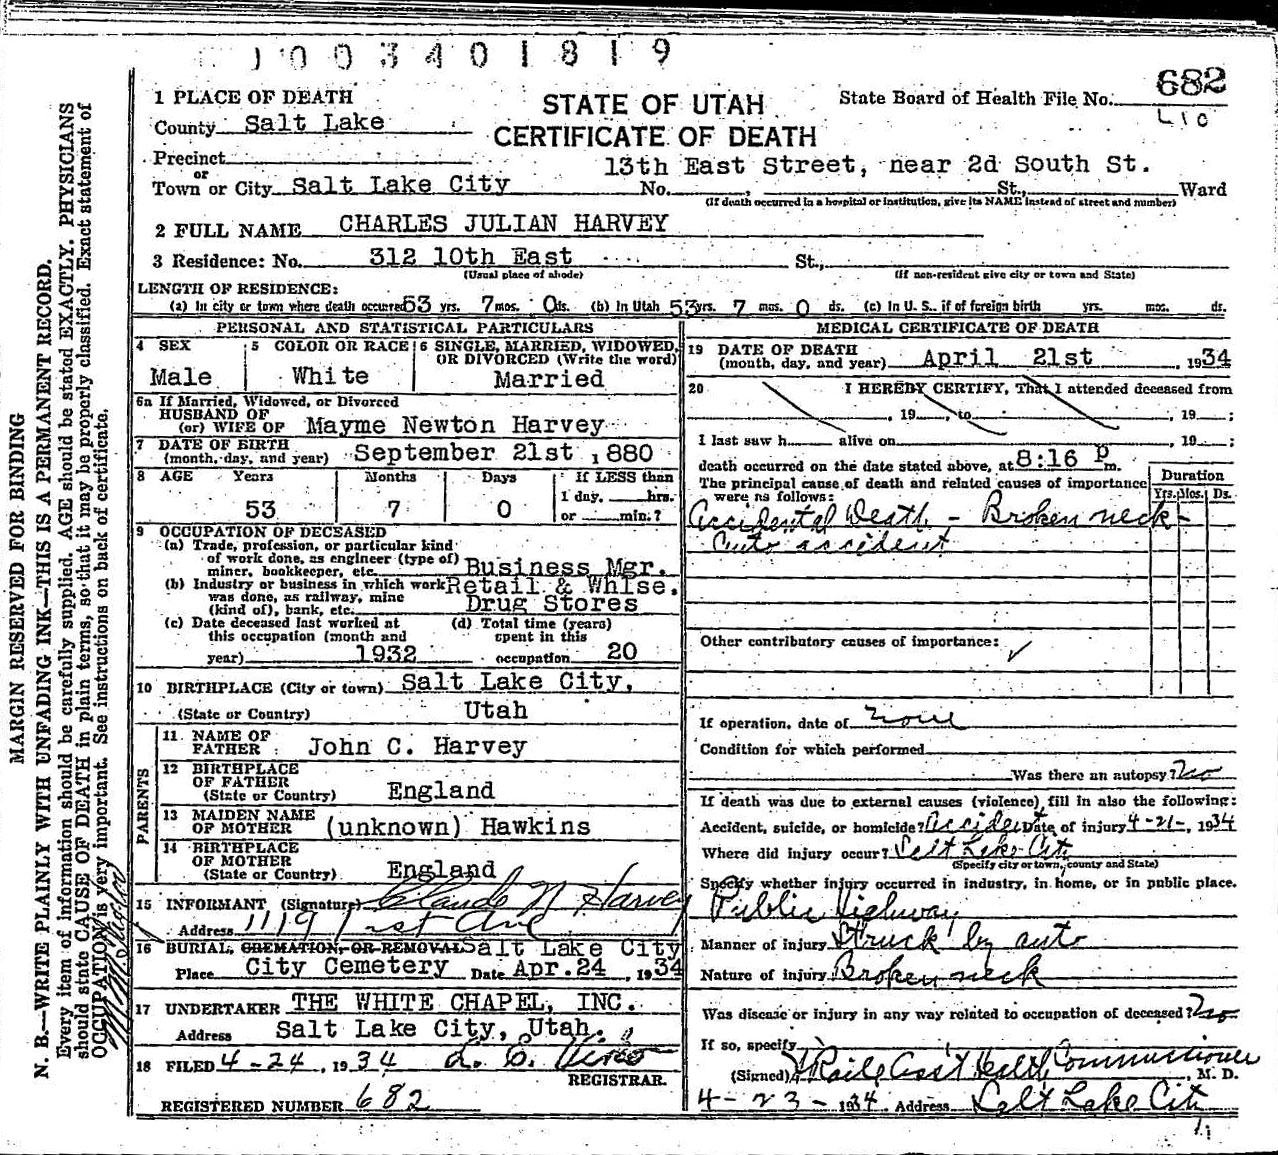 1003401819
682
STATE OF UTAH
CERTIFICATE OF DEATH
State Board of Health File No.
1 PLACE OF DEATH
County Salt Lake
Precinct
or
Town or City Salt Lake City
13th East Street, near 2d South St.
No. , St., Ward
(If death occurred in a hospital or institution, give its NAME instead of street and number)
2 FULL NAME CHARLES JULIAN HARVEY
3 Residence: No. 312 10th East St.,
(Usual place of abode) (If non-resident give city or town and State)
LENGTH OF RESIDENCE:
(a) In city or town where death occurred 53 yrs. 7 mos. 0 ds. (b) In Utah 53 yrs. 7 mos. 0 ds. (c) In U. S., if of foreign birth yrs. mos. ds.
PERSONAL AND STATISTICAL PARTICULARS
4 SEX
Male
5 COLOR OR RACE
White
6 SINGLE, MARRIED, WIDOWED,
OR DIVORCED (Write the word)
Married
6a If Married, Widowed, or Divorced
HUSBAND OF
(or) WIFE OF Mayme Newton Harvey
7 DATE OF BIRTH
(month, day, and year) September 21st, 1880
8 AGE Years Months Days If LESS than
1 day, hrs.
53 7 0 or min.?
9 OCCUPATION OF DECEASED
(a) Trade, profession, or particular kind
of work done, as engineer (type of)
miner, bookkeeper, etc. Business Mgr.
(b) Industry or business in which work Retail & Whlse.
was done, as railway, mine
(kind of), bank, etc. Drug Stores
(c) Date deceased last worked at
this occupation (month and
year) 1932
(d) Total time (years)
spent in this
occupation 20
10 BIRTHPLACE (City or town) Salt Lake City,
(State or Country) Utah
PARENTS
11 NAME OF
FATHER John C. Harvey
12 BIRTHPLACE
OF FATHER
(State or Country) England
13 MAIDEN NAME
OF MOTHER (unknown) Hawkins
14 BIRTHPLACE
OF MOTHER
(State or Country) England
15 INFORMANT (Signature) Claude N Harvey
Address 1119 1st Ave
16 BURIAL, CREMATION, OR REMOVAL Salt Lake City
Place City Cemetery Date Apr. 24, 1934
17 UNDERTAKER THE WHITE CHAPEL, INC.
Address Salt Lake City, Utah.
18 FILED 4-24, 1934
REGISTRAR.
REGISTERED NUMBER 682
MEDICAL CERTIFICATE OF DEATH
19 DATE OF DEATH
(month, day, and year) April 21st 1934
20 I HEREBY CERTIFY, That I attended deceased from
, 19 , to , 19 ;
I last saw h alive on , 19 ;
death occurred on the date stated above, at 8:16 P m.
The principal cause of death and related causes of importance
were as follows:
Duration
Yrs. Mos. Ds.
Accidental Death - Broken neck -
Auto accident
Other contributory causes of importance:
If operation, date of none
Condition for which performed
Was there an autopsy? No
If death was due to external causes (violence) fill in also the following:
Accident, suicide, or homicide? Accident Date of injury 4-21-, 1934
Where did injury occur? Salt Lake City
(Specify city or town, county and State)
Specify whether injury occurred in industry, in home, or in public place.
Public Highway
Manner of injury Struck by auto
Nature of injury Broken neck
Was disease or injury in any way related to occupation of deceased? No
If so, specify
(Signed) Asst Health Commissioner, M. D.
4-23-1934 Address Salt Lake City
MARGIN RESERVED FOR BINDING
N. B.—WRITE PLAINLY WITH UNFADING INK—THIS IS A PERMANENT RECORD.
Every item of information should be carefully supplied. AGE should be stated EXACTLY. PHYSICIANS
should state CAUSE OF DEATH in plain terms, so that it may be properly classified. Exact statement of
OCCUPATION is very important. See instructions on back of certificate.